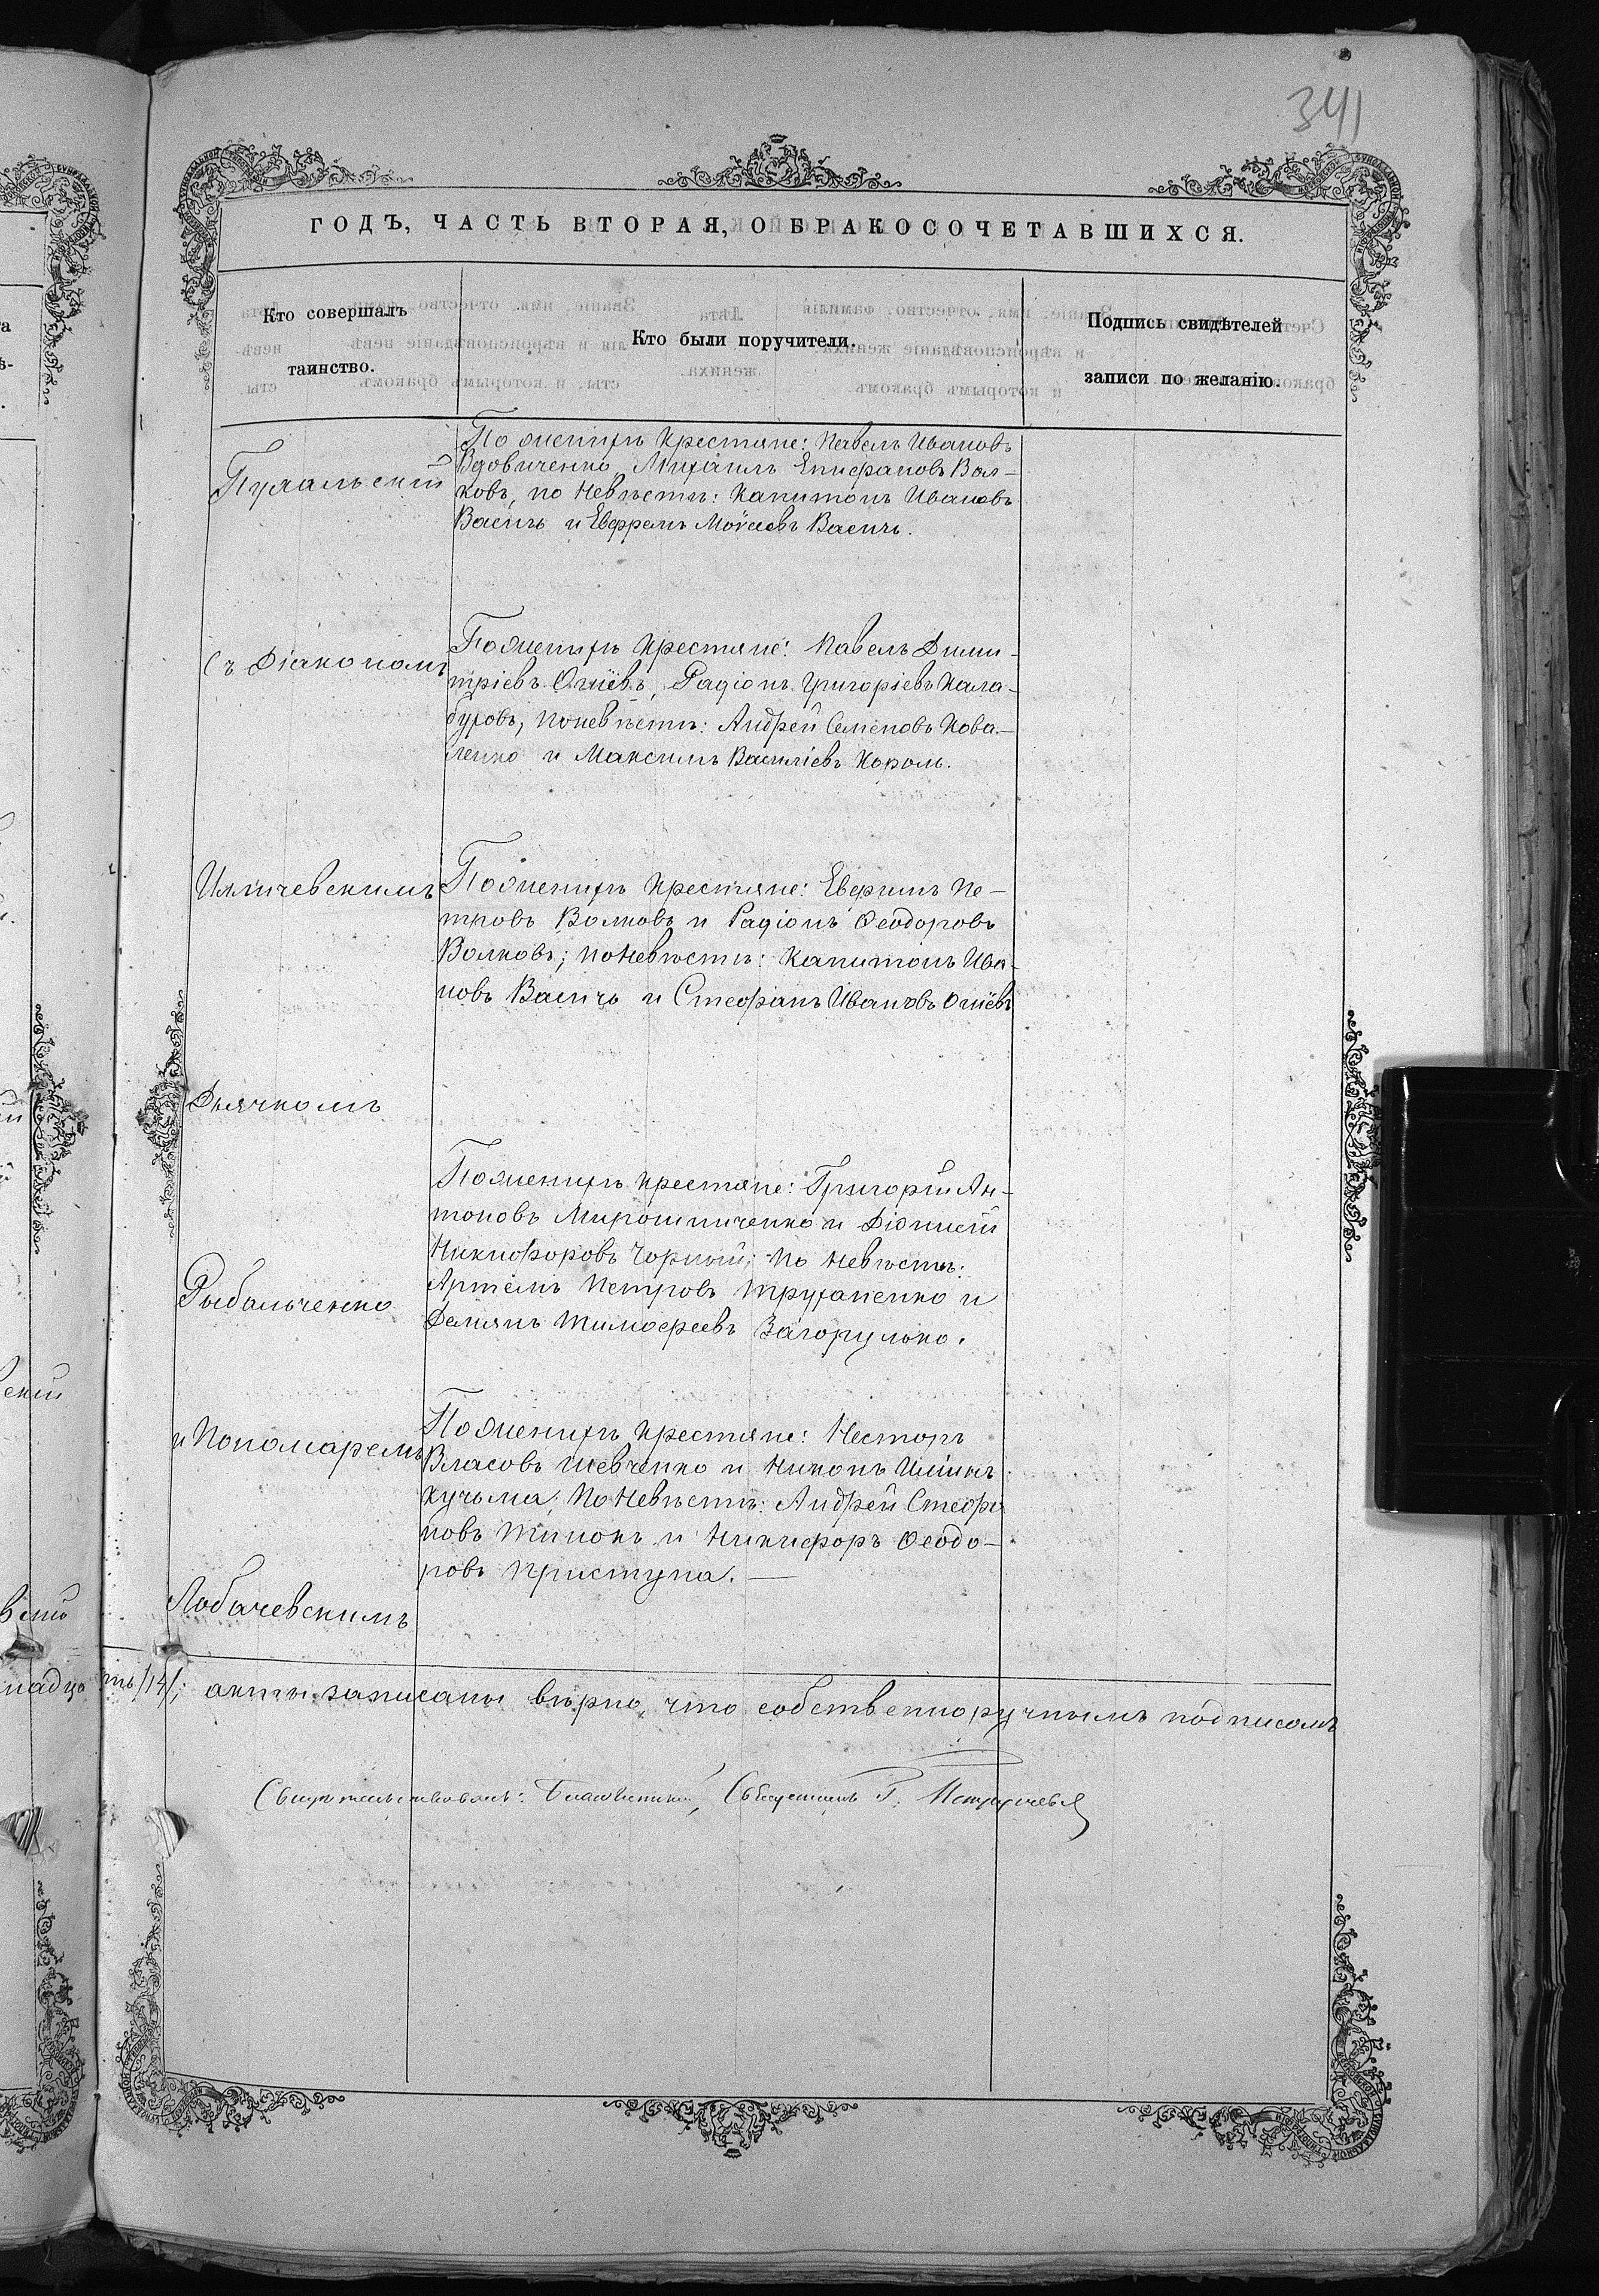 341
ГОДЪ, ЧАСТЬ ВТОРАЯ, О БРАКОСОЧЕТАВШИХСЯ.
Кто совершалъ
таинство.
Кто были поручители.
Подпись свидѣтелей
записи по желанію.
По женихѣ крестяне: Павелъ Ивановъ
Вдовиченко, Михаилъ Епифановъ Вол-
ковъ, по невѣстѣ: Капитонъ Ивановъ
Ваеичъ и Ефремъ Моѵсеевъ Ваеичъ.
съ Діакономъ
По женихѣ крестяне: Павелъ Дими-
тріевъ Огиевъ, Радіонъ Григоріевъ Кала-
буховъ, по невѣстѣ: Андрей Семеновъ Кова-
ленко и Максимъ Василіевъ Король.
По женихѣ крестяне: Евфимъ Пе-
тровъ Волковъ и Радіонъ Ѳеодоровъ
Волковъ; по невѣстѣ: Капитонъ Ива-
новъ Ваеичъ и Стефанъ Ивановъ Огиевъ
Дьячкомъ
По женихѣ крестяне: Григорій Ан-
тоновъ Мирошниченко и Діонисій
Никифоровъ Чорный; по невѣстѣ:
Артемъ Петровъ Труханенко и
Демянъ Тимофеевъ Загорулько.
Рыбальченко
и Пономаремъ
По женихѣ крестяне: Несторъ
Власовъ Шевченко и Никонъ
Кучьма; по невѣстѣ: Андрей Стефа
новъ и Никифоръ Ѳеодо-
ровъ Приступа. —
Лобачевскимъ
надцать /14/; акты записаны вѣрно, что собственноручнымъ подписомъ
Свидѣтельствовалъ: Благочинный, Священникъ Г.